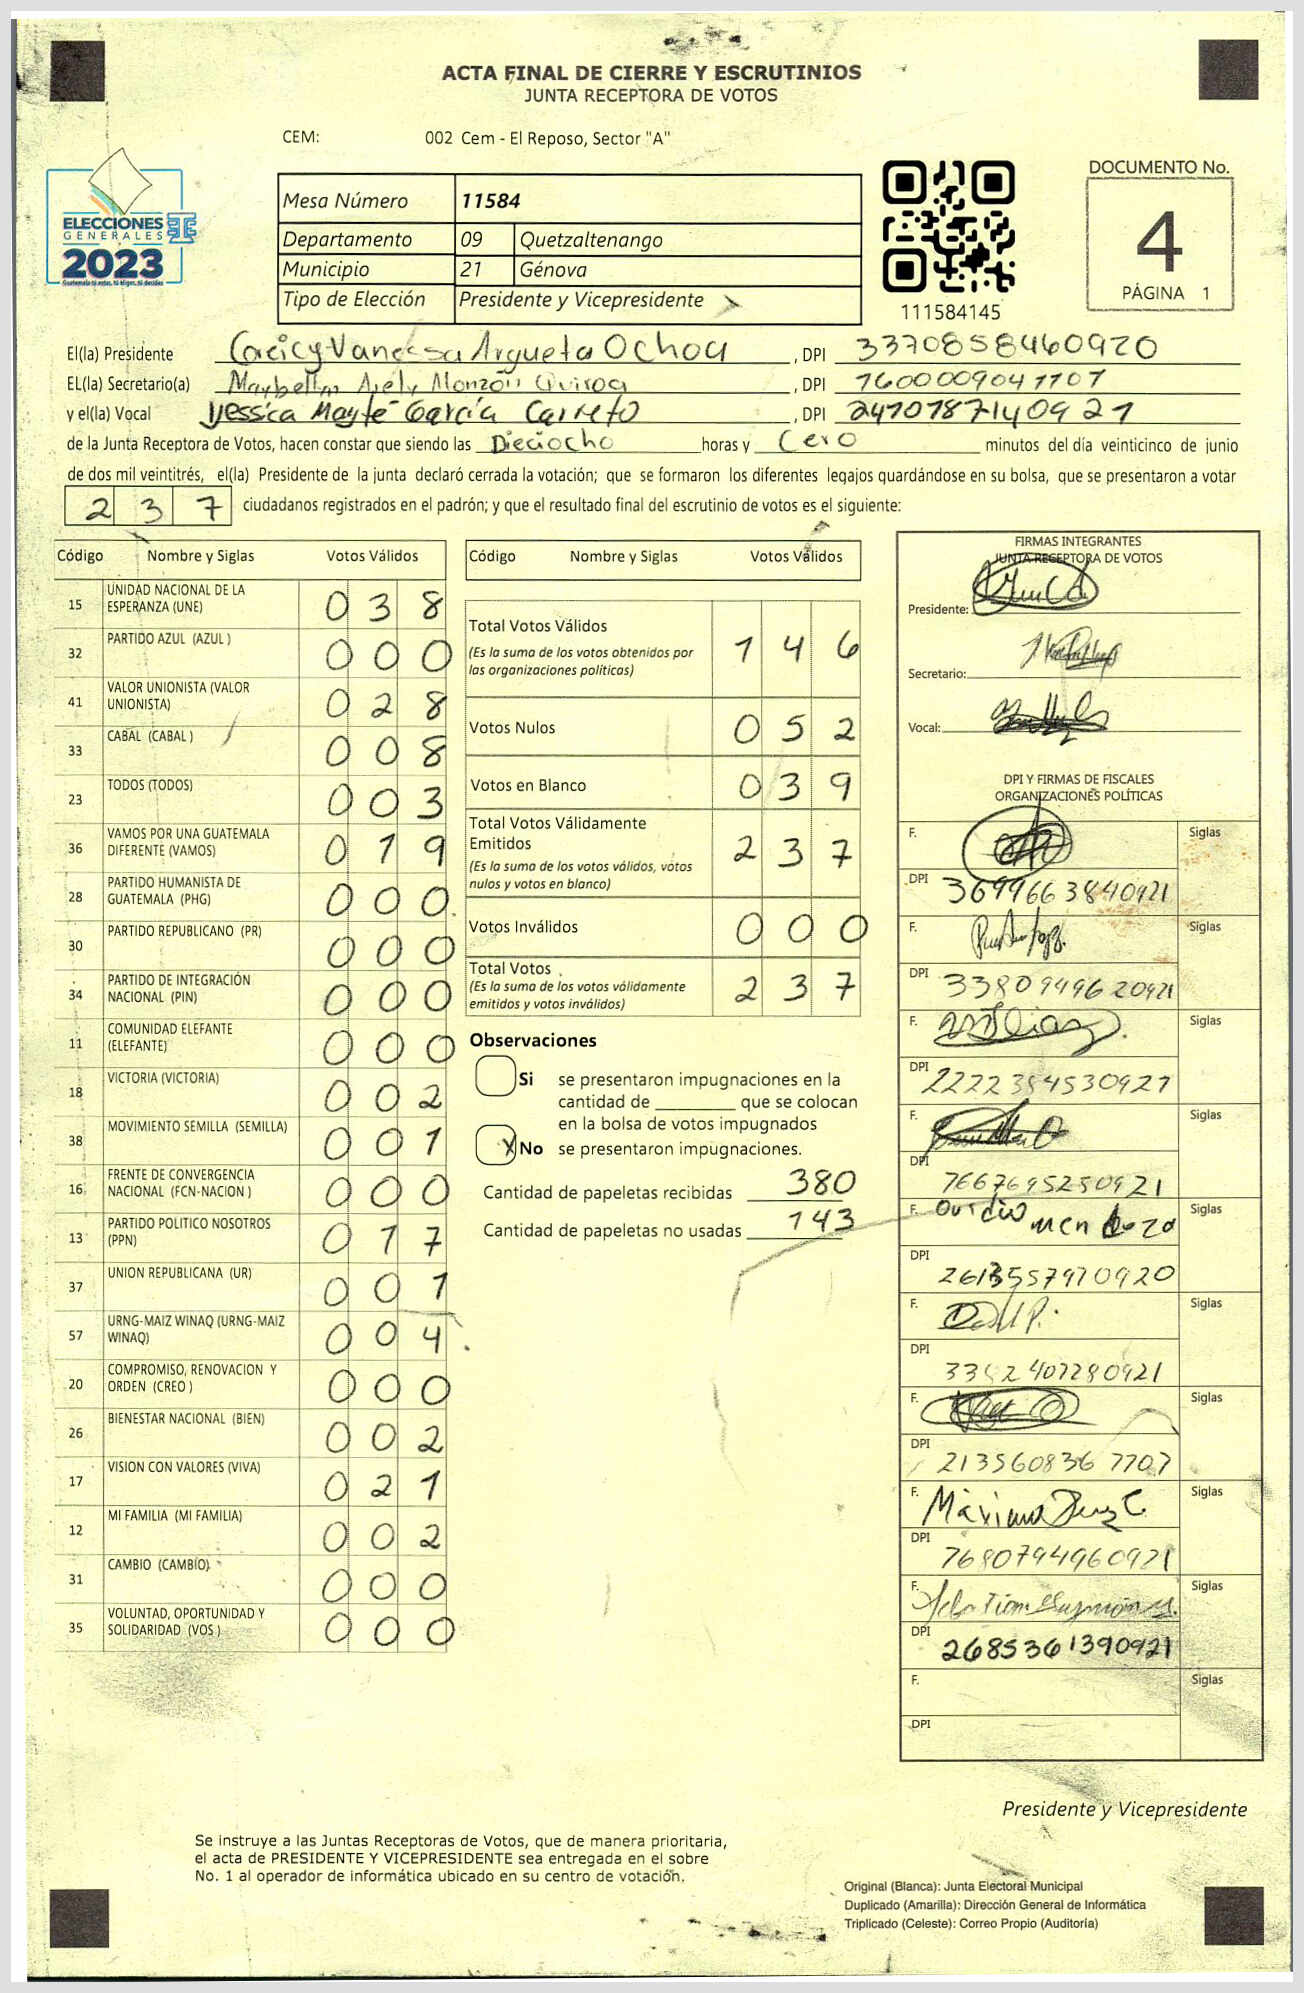 ACTA FINAL DE CIERRE Y ESCRUTINIOS
JUNTA RECEPTORA DE VOTOS
CEM: 002 Cem - El Reposo, Sector "A"
ELECCIONES
GENERALES
2023
Mesa Número 11584
Departamento 09 Quetzaltenango
Municipio 21 Génova
Tipo de Elección Presidente y Vicepresidente
111584145
DOCUMENTO No.
4
PÁGINA 1
El(la) Presidente Vanessa Argueta Ochoa , DPI 3370858460920
EL(la) Secretario(a) Maybellyn Arely Monzón Quiroa , DPI 1600009041107
y el(la) Vocal Yessica Mayté García Carreto , DPI 2410187140921
de la Junta Receptora de Votos, hacen constar que siendo las Dieciocho horas y Cero minutos del día veinticinco de junio
de dos mil veintitrés, el(la) Presidente de la junta declaró cerrada la votación; que se formaron los diferentes legajos guardándose en su bolsa, que se presentaron a votar
2 3 7 ciudadanos registrados en el padrón; y que el resultado final del escrutinio de votos es el siguiente:
Código Nombre y Siglas Votos Válidos
15 UNIDAD NACIONAL DE LA ESPERANZA (UNE) 0 3 8
32 PARTIDO AZUL (AZUL ) 0 0 0
41 VALOR UNIONISTA (VALOR UNIONISTA) 0 2 8
33 CABAL (CABAL ) 0 0 8
23 TODOS (TODOS) 0 0 3
36 VAMOS POR UNA GUATEMALA DIFERENTE (VAMOS) 0 1 9
28 PARTIDO HUMANISTA DE GUATEMALA (PHG) 0 0 0
30 PARTIDO REPUBLICANO (PR) 0 0 0
34 PARTIDO DE INTEGRACIÓN NACIONAL (PIN) 0 0 0
11 COMUNIDAD ELEFANTE (ELEFANTE) 0 0 0
18 VICTORIA (VICTORIA) 0 0 2
38 MOVIMIENTO SEMILLA (SEMILLA) 0 0 1
16 FRENTE DE CONVERGENCIA NACIONAL (FCN-NACION ) 0 0 0
13 PARTIDO POLITICO NOSOTROS (PPN) 0 1 7
37 UNION REPUBLICANA (UR) 0 0 1
57 URNG-MAIZ WINAQ (URNG-MAIZ WINAQ) 0 0 4
20 COMPROMISO, RENOVACION Y ORDEN (CREO ) 0 0 0
26 BIENESTAR NACIONAL (BIEN) 0 0 2
17 VISION CON VALORES (VIVA) 0 2 1
12 MI FAMILIA (MI FAMILIA) 0 0 2
31 CAMBIO (CAMBIO) 0 0 0
35 VOLUNTAD, OPORTUNIDAD Y SOLIDARIDAD (VOS ) 0 0 0
Código Nombre y Siglas Votos Válidos
Total Votos Válidos 1 4 6
(Es la suma de los votos obtenidos por
las organizaciones políticas)
Votos Nulos 0 5 2
Votos en Blanco 0 3 9
Total Votos Válidamente
Emitidos 2 3 7
(Es la suma de los votos válidos, votos
nulos y votos en blanco)
Votos Inválidos 0 0 0
Total Votos 2 3 7
(Es la suma de los votos válidamente
emitidos y votos inválidos)
Observaciones
Si se presentaron impugnaciones en la
cantidad de ________ que se colocan
en la bolsa de votos impugnados
X No se presentaron impugnaciones.
Cantidad de papeletas recibidas 380
Cantidad de papeletas no usadas 143
FIRMAS INTEGRANTES
JUNTA RECEPTORA DE VOTOS
Presidente:
Secretario:
Vocal:
DPI Y FIRMAS DE FISCALES
ORGANIZACIONES POLÍTICAS
F. Siglas
DPI 3699663840921
F. Siglas
DPI 3380949620921
F. Siglas
DPI 2222354530921
F. Siglas
DPI 7667695250921
F. Ovidio Mendoza Siglas
DPI 2613557970920
F. Siglas
DPI 3382407280921
F. Siglas
DPI 2135608367707
F. Siglas
DPI 7680794960921
F. Siglas
DPI 2685361390921
F. Siglas
DPI
Presidente y Vicepresidente
Se instruye a las Juntas Receptoras de Votos, que de manera prioritaria,
el acta de PRESIDENTE Y VICEPRESIDENTE sea entregada en el sobre
No. 1 al operador de informática ubicado en su centro de votación.
Original (Blanca): Junta Electoral Municipal
Duplicado (Amarilla): Dirección General de Informática
Triplicado (Celeste): Correo Propio (Auditoría)